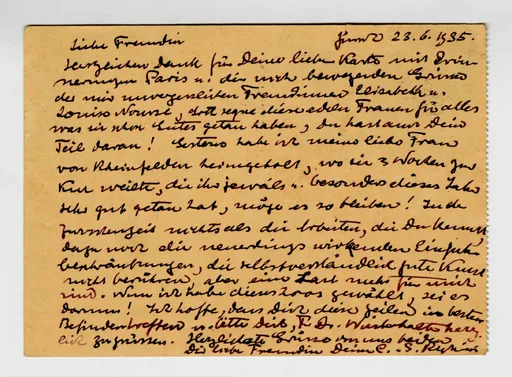 Liebe Freundin 23.6.1935.
Herzlichen Dank für Deine liebe Karte mit Erin-
nerungen Paris u. die mich bewegenden Grüsse
der mir unvergesslichen Freundinnen Elisabeth u.
Louise Nourse, Gott segne diese edlen Frauen für alles
was sie schon Gutes getan haben, Du hast auch Dein
Teil daran! Gestern habe ich meine liebe Frau
von Rheinfelden heimgeholt, wo sie 3 Wochen zur
Kur weilte, die ihr jeweils u. besonders dieses Jahr
sehr gut getan hat, möge es so bleiben! In der
Zwischenzeit nichts als die Arbeiten, die Du kennst,
dazu noch die neuerdings wirkenden Einfuhr-
beschränkungen, die selbstverständlich gute Kunst
nicht berühren, aber eine Last mehr für mich
sind. Nun ich habe dieses Loos gewählt, sei es
darum! Ich hoffe, dass Dich diese Zeilen im besten
Befinden treffen u. bitte Dich, F. Dr. herz-
lich zu grüssen. Herzliche Grüsse von uns beiden
Dir liebe Freundin Dein